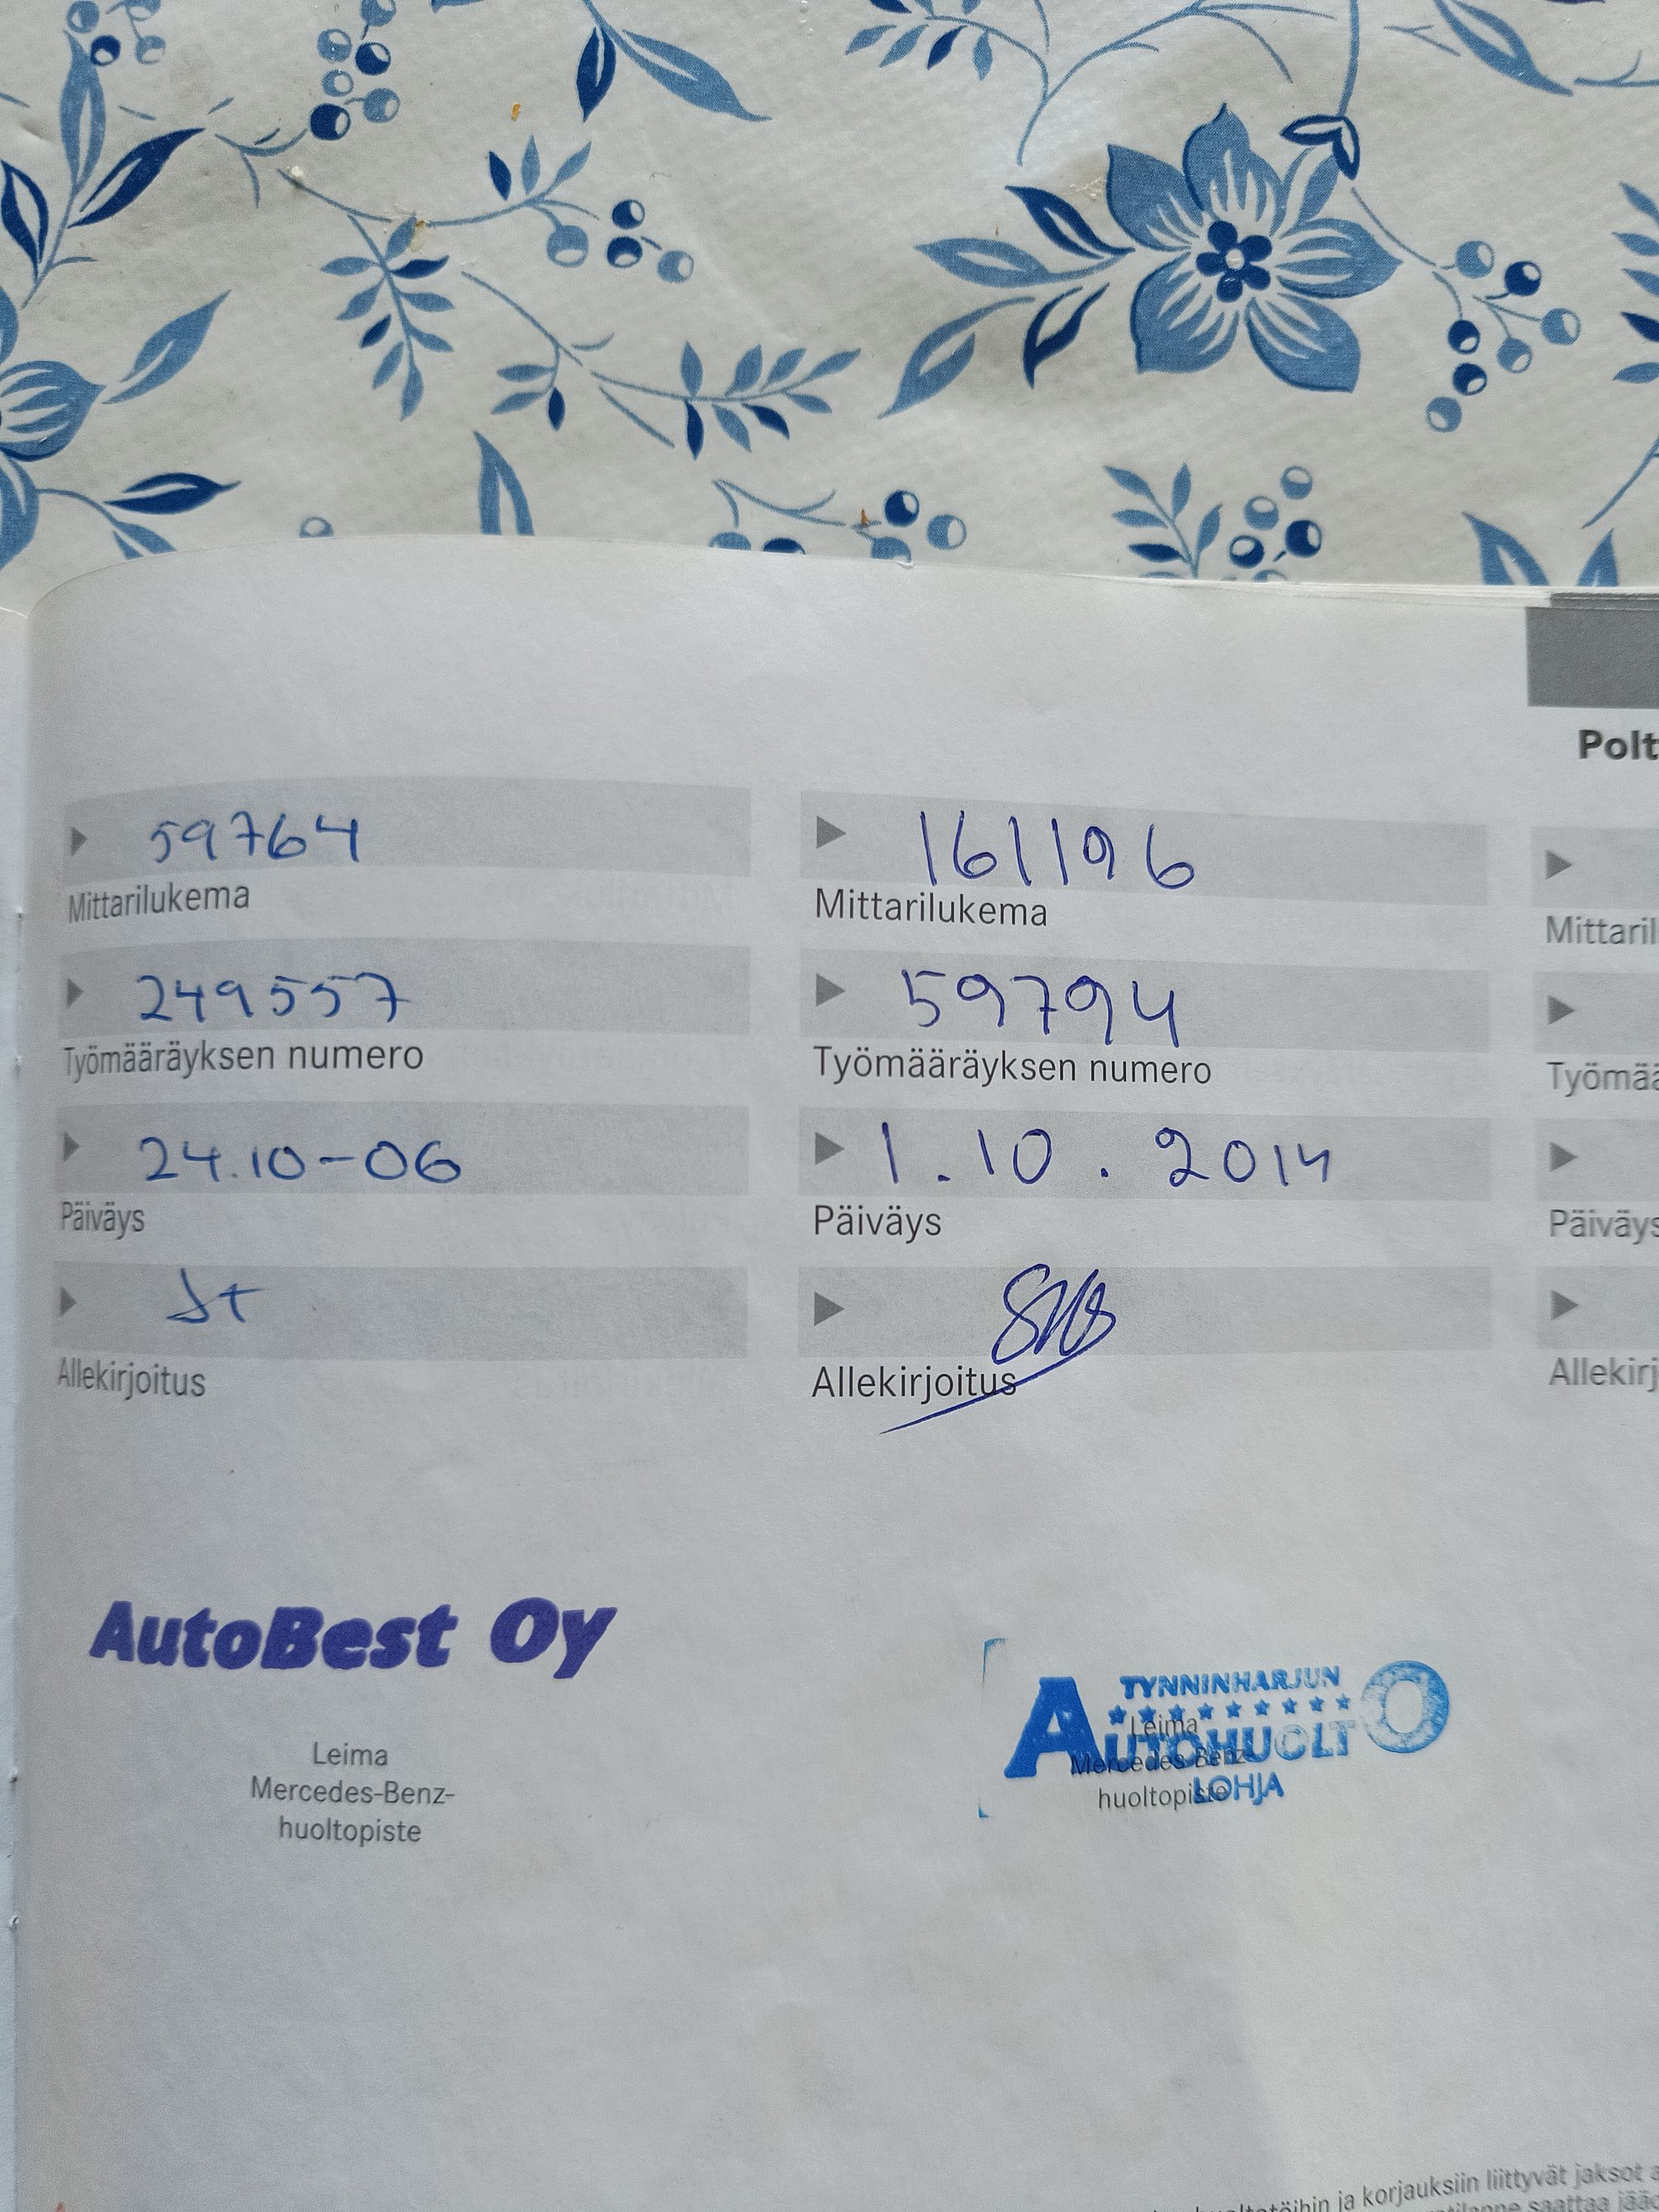 59764
Mittarilukema
249557
Työmääräyksen numero
24.10-06
Päiväys
Allekirjoitus
AutoBest Oy
Leima
Mercedes-Benz-
huoltopiste
161196
Mittarilukema
59794
Työmääräyksen numero
1.10.2014
Päiväys
Allekirjoitus
TYNNINHARJUN
AUTOHUOLTO
LOHJA
Leima
Mercedes-Benz-
huoltopiste
Polt
Mittaril
Työmää
Päiväys
Allekirj
ja korjauksiin liittyvät jaksot
saattaa